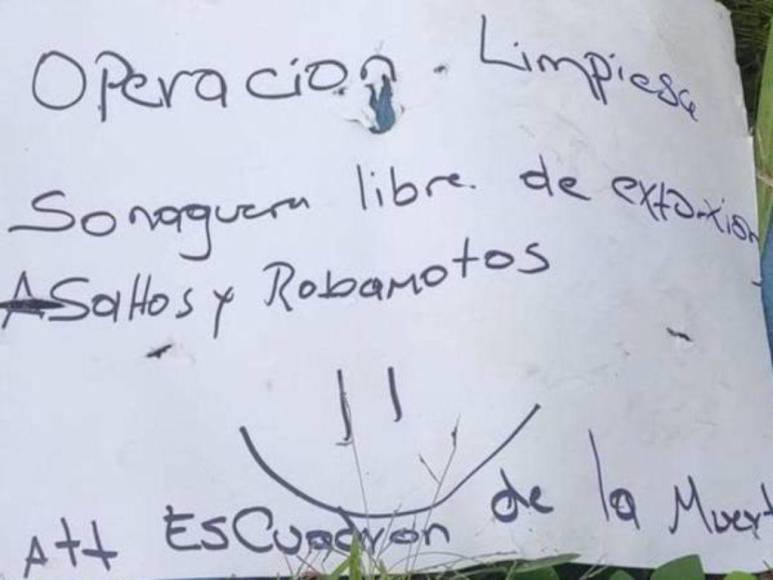 Operacion. Limpiesa
Sonaguera libre. de extorxion
ASaltos y Robamotos
Att EsCuadron de la Muert